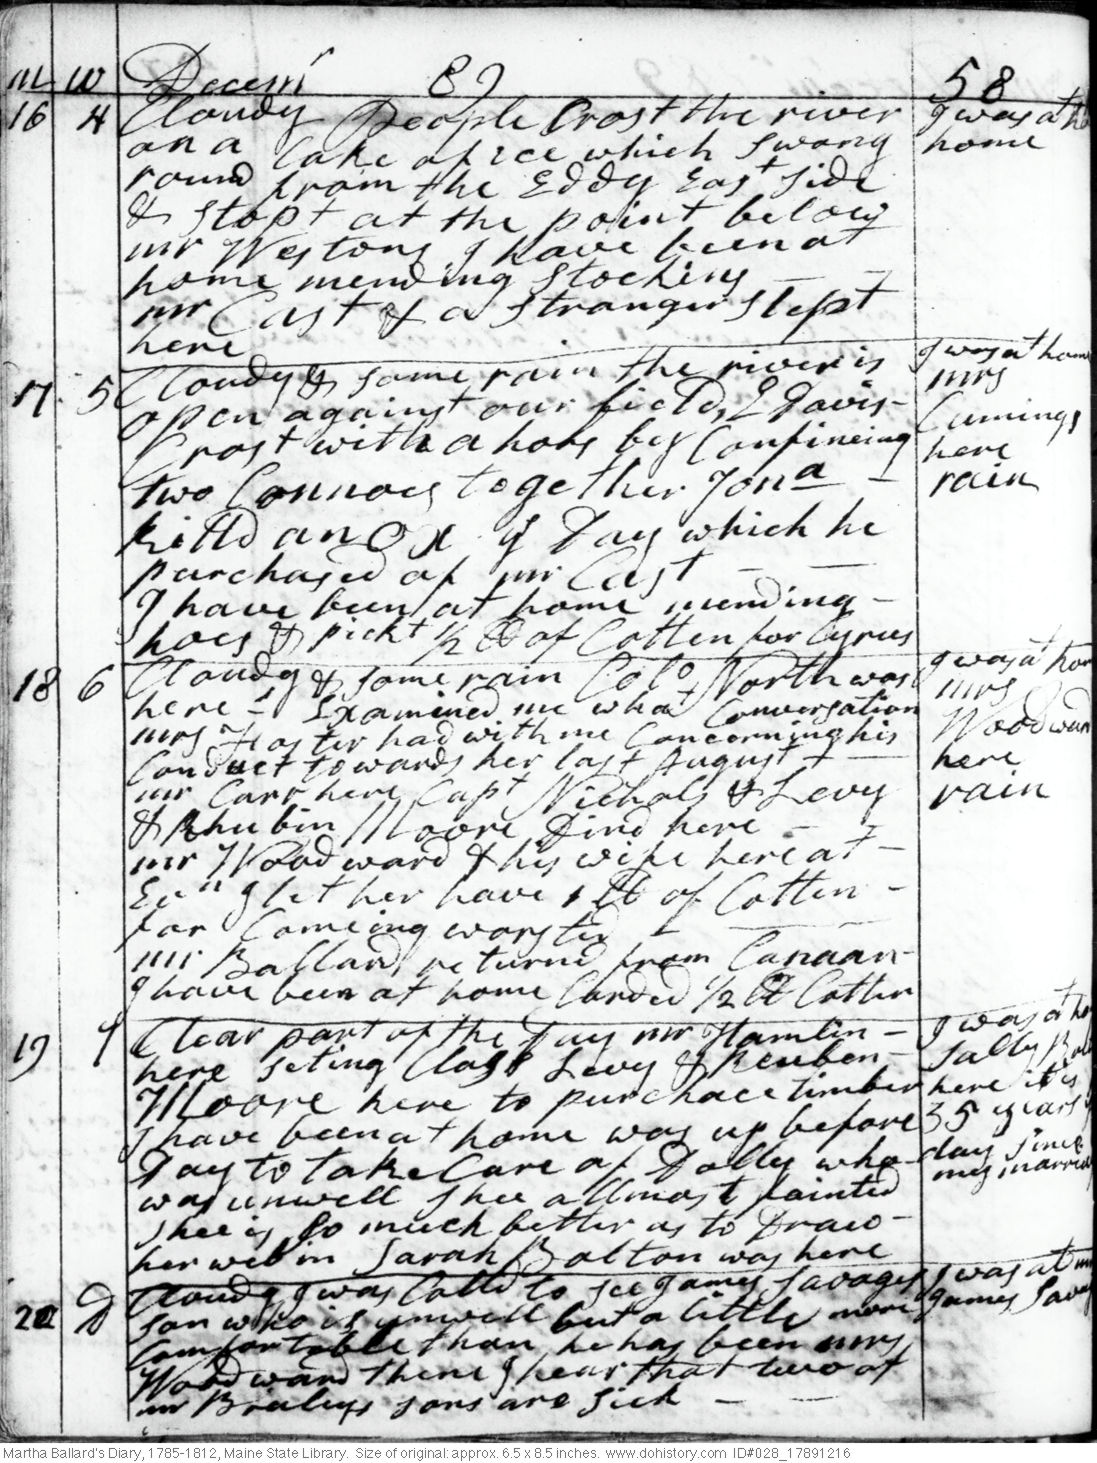 m w Decemr 89 58
16 4 Cloudy People Crost the river
on a Cake of ice which swong
round from the Eddy East side
& stopt at the point below
mr Westons I have been at
home mending stockins —
mr Cast & a stranger slept
here
I was at ho
home
17 5 Cloudy & some rain the river is
open against our field, E Davis
Crost with a hors by Confineing
two Connoes together Jona
killd an Ox ys Day which he
purchased of mr Cast — —
I have been at home mending —
hoes & pickt 1/2 lb of Cotten for Cyrus
I was at home
mrs
Cumings
here
rain
18 6 Cloudy & some rain Colo North was
here - Examined me what Conversation
mrs Foster had with me Concerning his
Conduct towards her last August —
mr Carr here Capt Nichols & Levy
& Rhubin Moore Dind here —
mr Woodward & his wife here at —
Evn I let her have 1 lb of Cotten —
for Comeing worsted —
mr Ballard returnd from Canaan
I have been at home Carded 1/2 lb Cotten
I was at hom
mrs
Woodward
here
rain
19 7 Clear part of the Day mr Hamlin —
here seting Class Levy & Reuben —
Moore here to purchace timber
I have been at home was up before
Day to take Care of Dolly who
was unwell shee allmost fainted
shee is so much better as to Draw
her web in Sarah Bolton was here
I was at ho
Sally Bol
here it is
35 years
day since
my marriag
20 D Cloudy I was Calld to see James Savages
son who is unwell but a little more
Comfortable than he has been mrs
Woodward there I hear that two of
mr sons are sick —
I was at mr
James Savag
Martha Ballard's Diary, 1785-1812, Maine State Library. Size of original: approx. 6.5 x 8.5 inches. www.dohistory.com ID#028_17891216